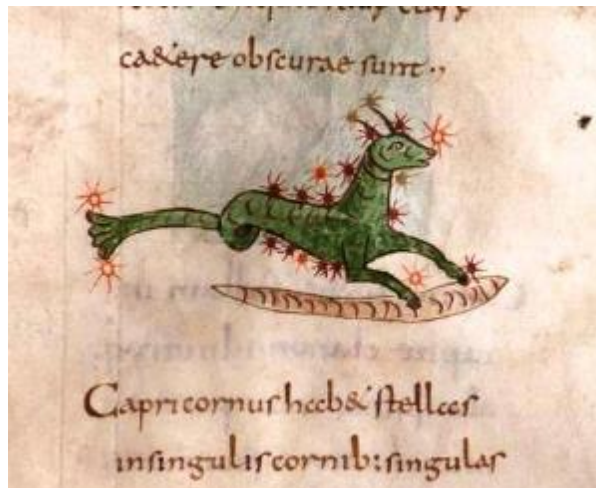 ca&ere obscurae sunt.,
Capricornus hab& stellas
insingulis cornib: singulas